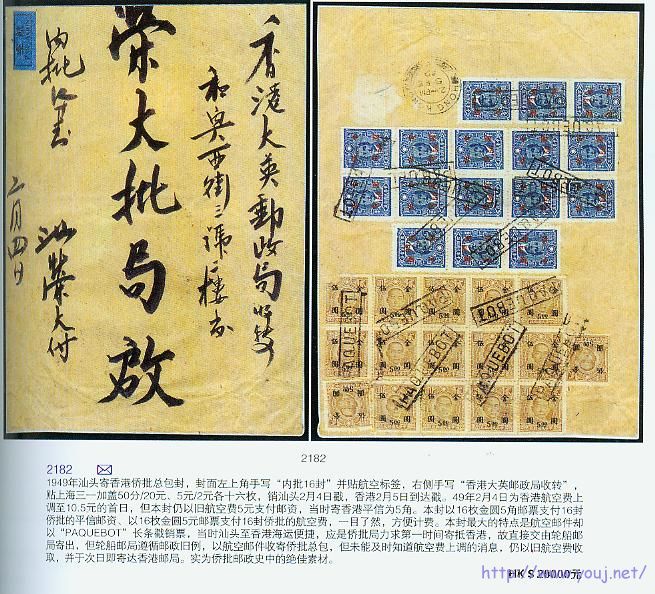 香港大英郵政局收转
和興西街三號樓交
荣大批局啟
内批
二月四日
汕荣大付
HONG KONG
PAQUEBOT
PAQUEBOT
PAQUEBOT
2182
2182
1949年汕头寄香港侨批总包封，封面左上角手写“内批16封”并贴航空标签，右侧手写“香港大英邮政局收转”，
贴上海三一加盖50分/20元、5元/2元各十六枚，销汕头2月4日戳，香港2月5日到达戳。49年2月4日为香港航空费上
调至10.5元的首日，但本封仍以旧航空费5元支付邮资，当时寄香港平信为5角。本封以16枚金圆5角邮票支付16封
侨批的平信邮资、以16枚金圆5元邮票支付16封侨批的航空费，一目了然，方便计费。本封最大的特点是航空邮件却
以“PAQUEBOT”长条戳销票，当时汕头至香港海运便捷，应是侨批局力求第一时间寄抵香港，故直接交由轮船邮
局寄出，但轮船邮局遵循邮政旧例，以航空邮件收寄侨批总包，但未能及时知道航空费上调的消息，仍以旧航空费收
取，并于次日即寄达香港邮局。实为侨批邮政史中的绝佳素材。
HK$ 20000元
http://www.youj.net/